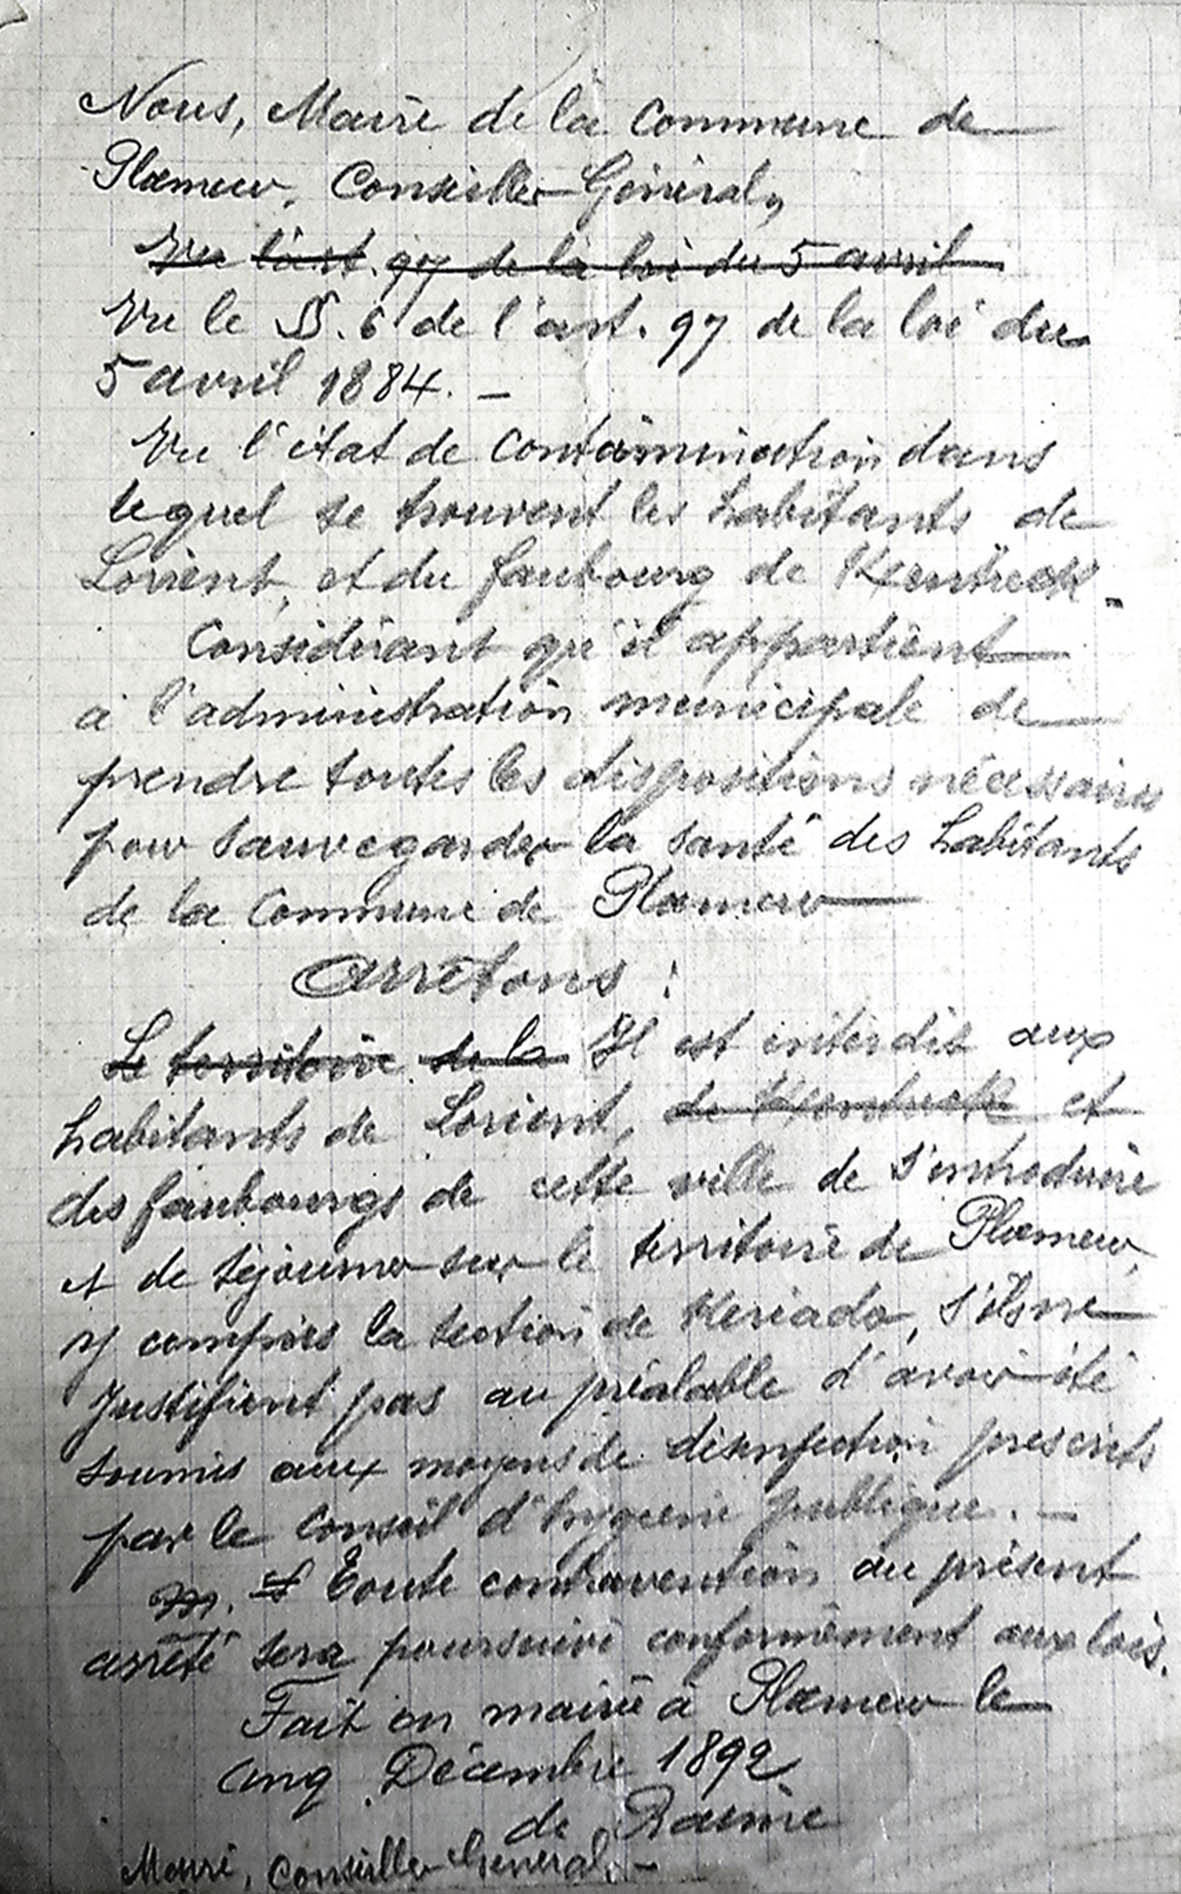 Nous, Maire de la Commune de
Ploemeur, Conseiller Général,
Vu l'art. 97 de la loi du 5 avril
Vu le §§. 6 de l'art. 97 de la loi du
5 avril 1884. —
Vu l'état de contamination dans
lequel se trouvent les habitants de
Lorient, et du faubourg de Kentrech. -
Considérant qu'il appartient
à l'administration municipale de
prendre toutes les dispositions nécessaires
pour sauvegarder la santé des habitants
de la Commune de Ploemeur
arrêtons :
Le territoire de la Il est interdit aux
habitants de Lorient, de Kentrech et
des faubourgs de cette ville de s'introduire
et de séjourner sur le territoire de Ploemeur,
y compris la section de Keriado, s'ils ne
justifient pas au préalable d'avoir été
soumis aux moyens de désinfection prescrits
par le Conseil d'hygiène publique. —
Toute contravention au présent
arrêté sera poursuivi conformément aux lois.
Fait en mairie à Ploemeur le
cinq Décembre 1892
de Raime
Maire, Conseiller Général. -